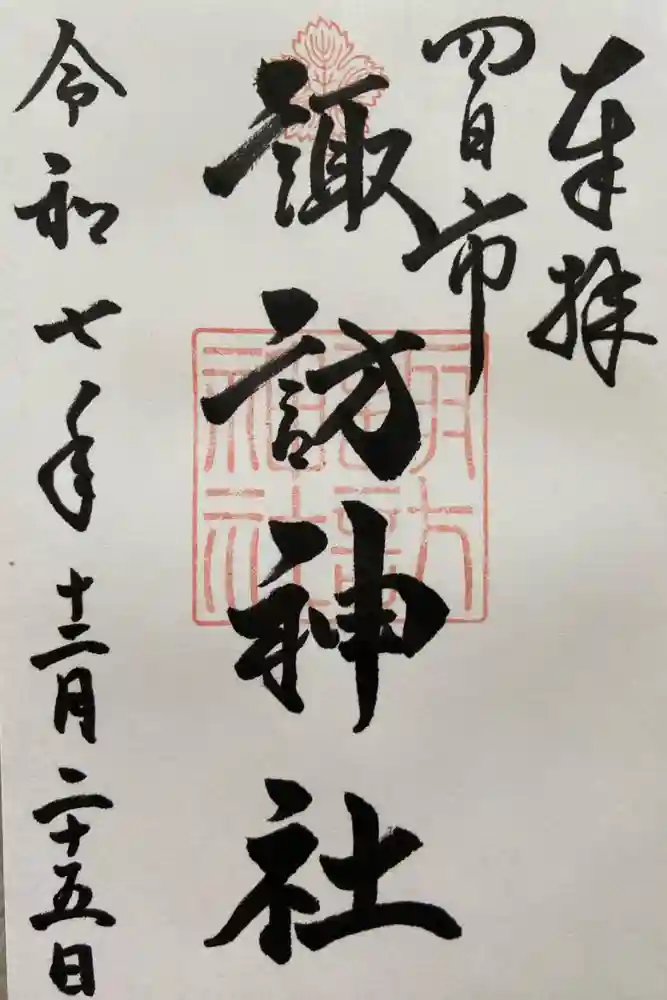 奉拝
四日市
諏訪神社
諏訪神社
令和七年十二月二十五日